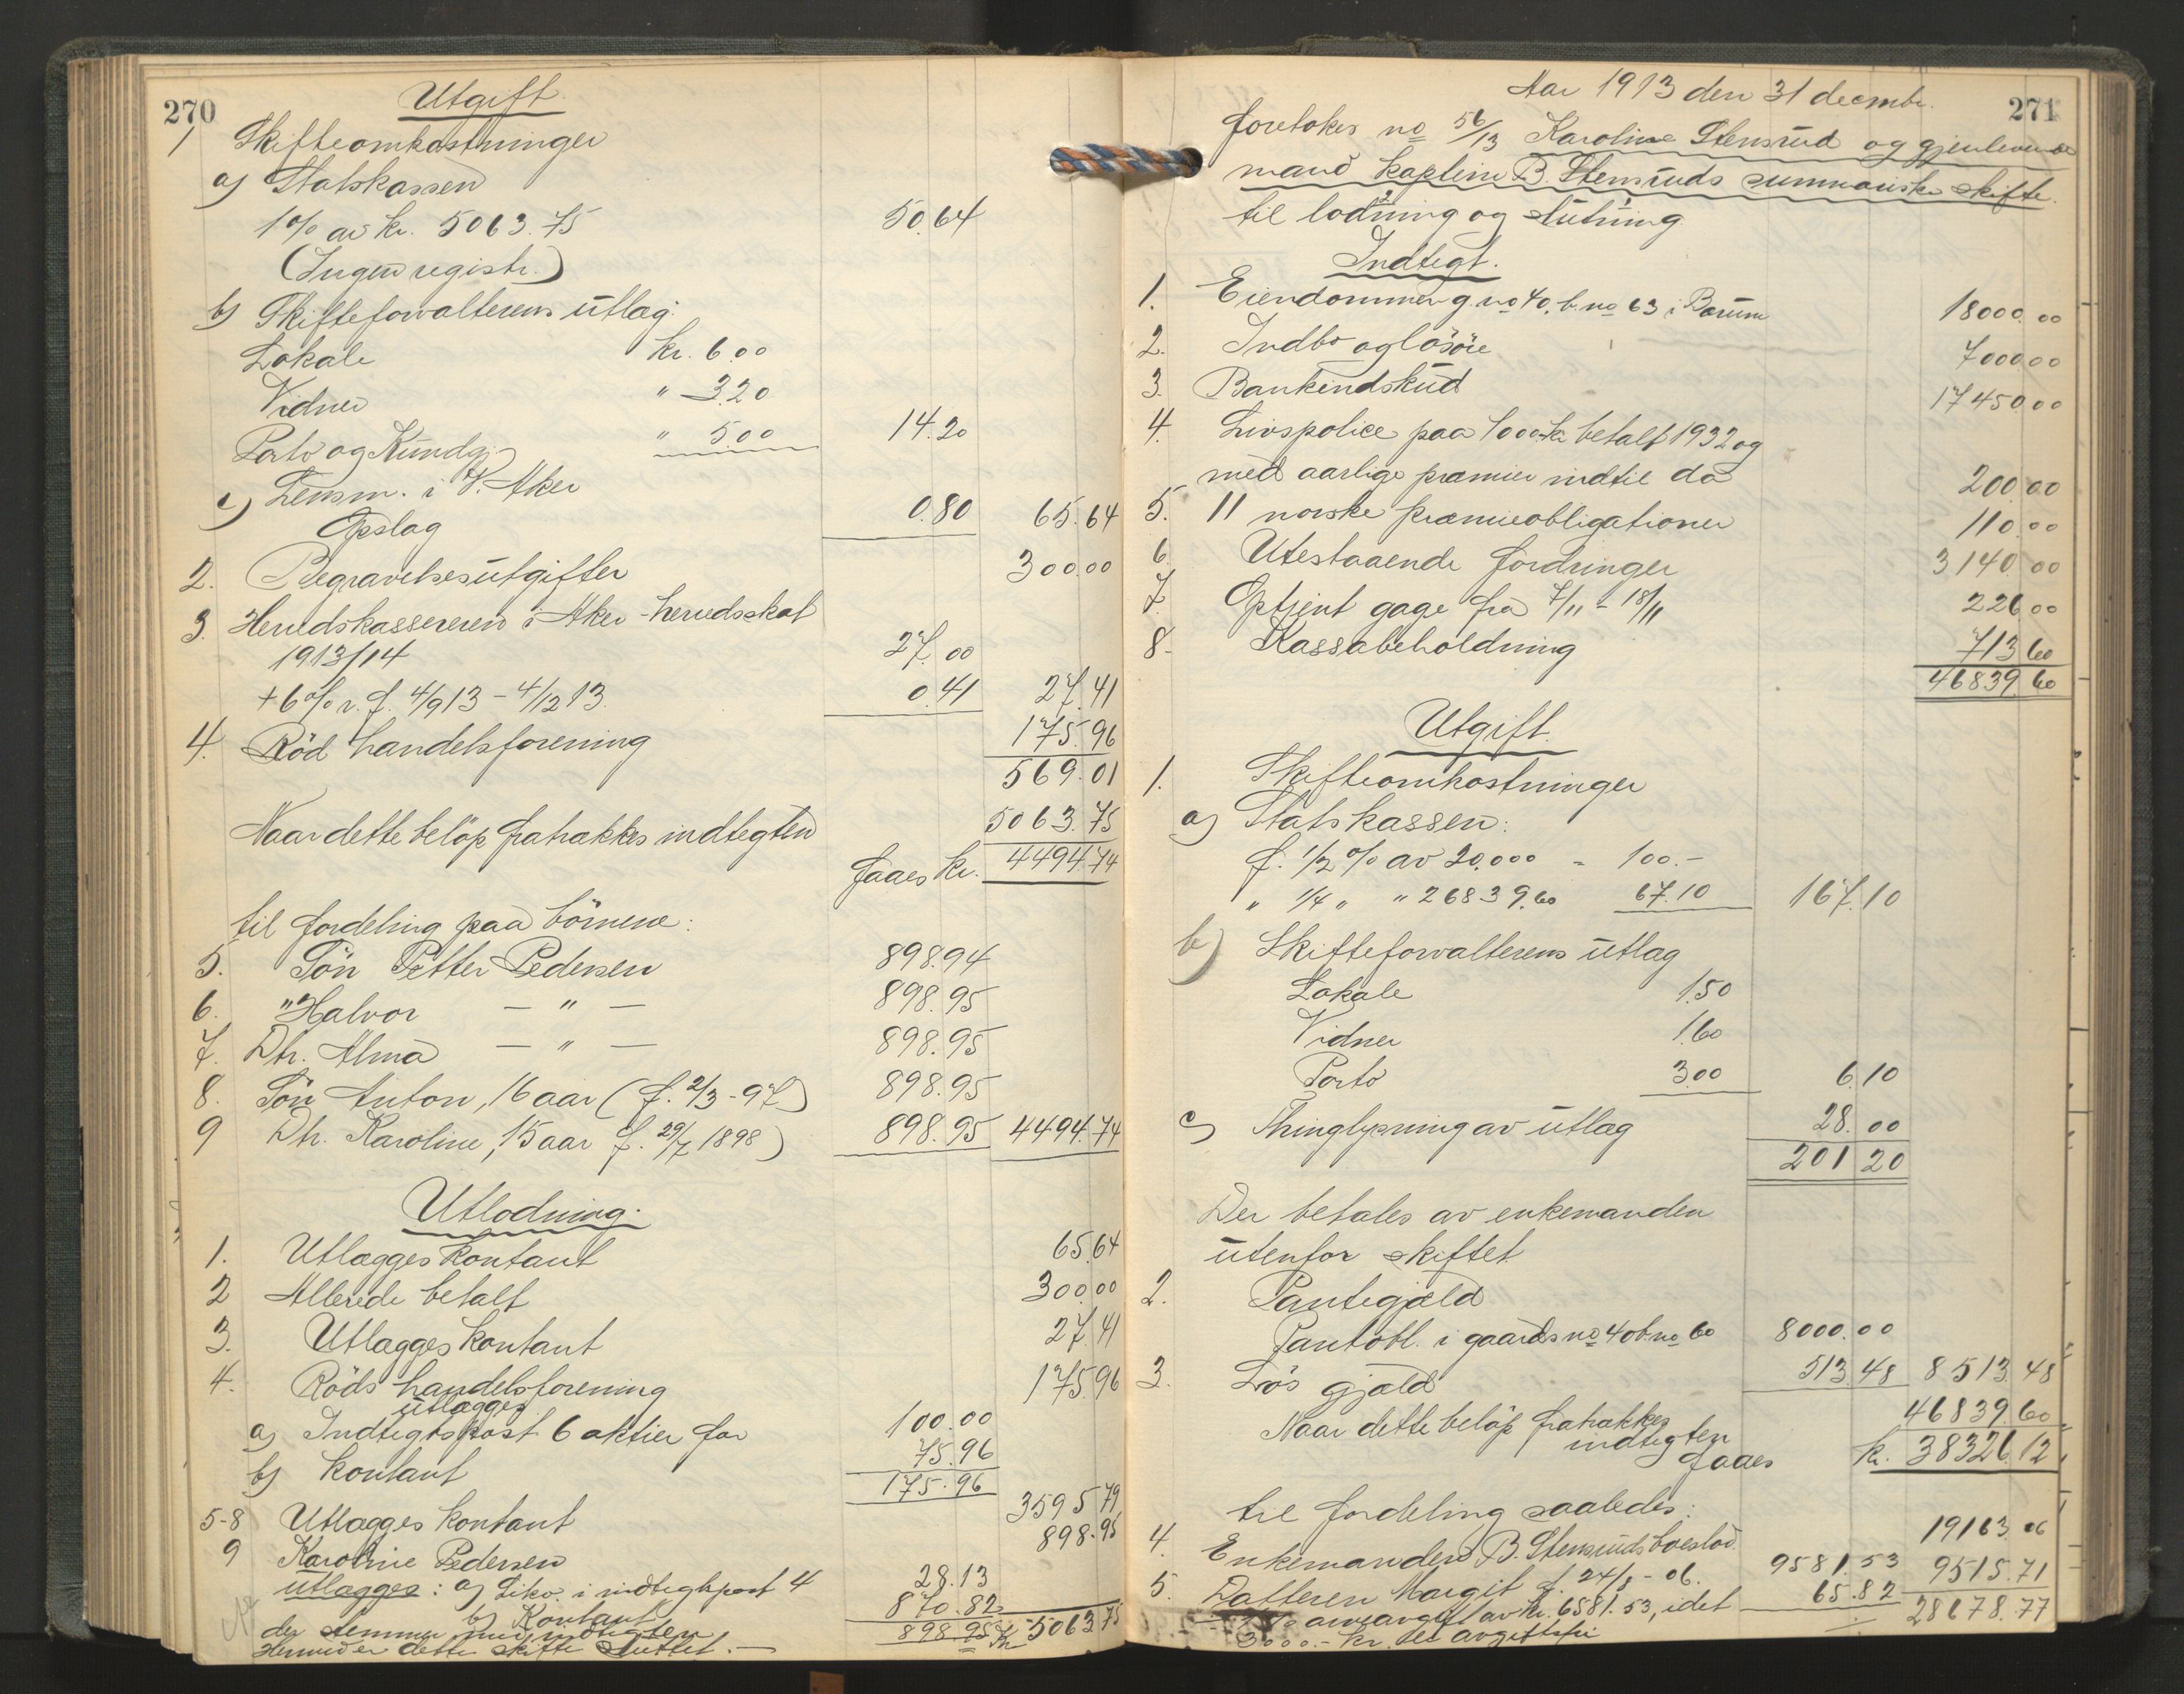 270
Utgift.
1 Skifteomkostninger
a) Statskassen
1% av kr. 5063.75 50.64
(Ingen registr.)
b) Skifteforvalterens utlag:
Lokale kr. 6.00
Vidner " 3.20
Porto og Kundgj. " 5.00 14.20
c) Lensm. i V. Aker
Opslag 0.80 65.64
2. Begravelsesutgifter 300.00
3. Herredskassereren i Aker - herredsskat
1913/14 27.00
+ 6% r. f. 4/9 13 - 4/12 13. 0.41 27.41
4. Röd handelsforening 175.96
569.01
Naar dette beløp fratrækkes indtegten 5063.75
faaes kr. 4494.74
til fordeling paa børnene:
5. Sön Petter Pedersen 898.94
6. " Halvor — " — 898.95
7. Dtr. Alma — " — 898.95
8. Sön Anton, 16 aar (f. 2/3 - 97) 898.95
9 Dtr. Karoline, 15 aar f. 29/7 1898) 898.95 4494.74
Utlodning.
1. Utlægges kontant 65.64
2 Allerede betalt 300.00
3. Utlægges kontant 27.41
4. Röds handelsforening 175.96
utlægges
a) Indtegtspost 6 aktier for 100.00
b) kontant 75.96
175.96
5-8 Utlægges kontant 3595.79
9 Karoline Pedersen 898.95
utlægges: a) i indtegtspost 4 28.13
b) Kontant 870.82
der stemmer med indtegten 898.95 kr 5063.75
Hermed er dette skifte sluttet. —
271
Aar 1913 den 31 decembr.
foretokes no 56/13 Karoline Stensrud og gjenlevende
mand kaptein B. Stensruds summariske skifte
til lodning og slutning
Indtegt.
1. Eiendommen g. no 40, b. no 63 i Bærum 18000.00
2. Indbo og løsøre 7000.00
3. Bankindskud 17450.00
4. Livspolice paa 1000 kr betalb. 1932 og
med aarlige præmier indtil da 200.00
5. 11 norske præmieobligationer 110.00
6. Utestaaende fordringer 3140.00
7. Optjent gage fra 7/11 - 18/11 226.00
8. Kassabeholdning 713.60
46839.60
Utgift.
1. Skifteomkostninger
a) Statskassen:
f. 1/2 % av 20.000 = 100.-
" 1/4 " " 26839.60 67.10 167.10
b) Skifteforvalterens utlag
Lokale 1.50
Vidner 1.60
Porto 3.00 6.10
c) Thinglysning av utlæg 28.00
201.20
Der betales av enkemanden
utenfor skiftet
2. Pantegjæld
Pantobl. i gaards no 40 b. no 60 8000.00
3. Løs gjæld 513.48 8513.48
Naar dette beløp fratrækkes 46839.60
indtegten
faaes kr. 38326.12
til fordeling saaledes:
4. Enkemanden B. Stensruds boeslod 19163.06
5. Datteren Margit f. 24/8 - 06. 9581.53 9515.71
arveavgift av kr. 6581.53, idet 65.82 28678.77
3000.- kr. er avgiftsfri